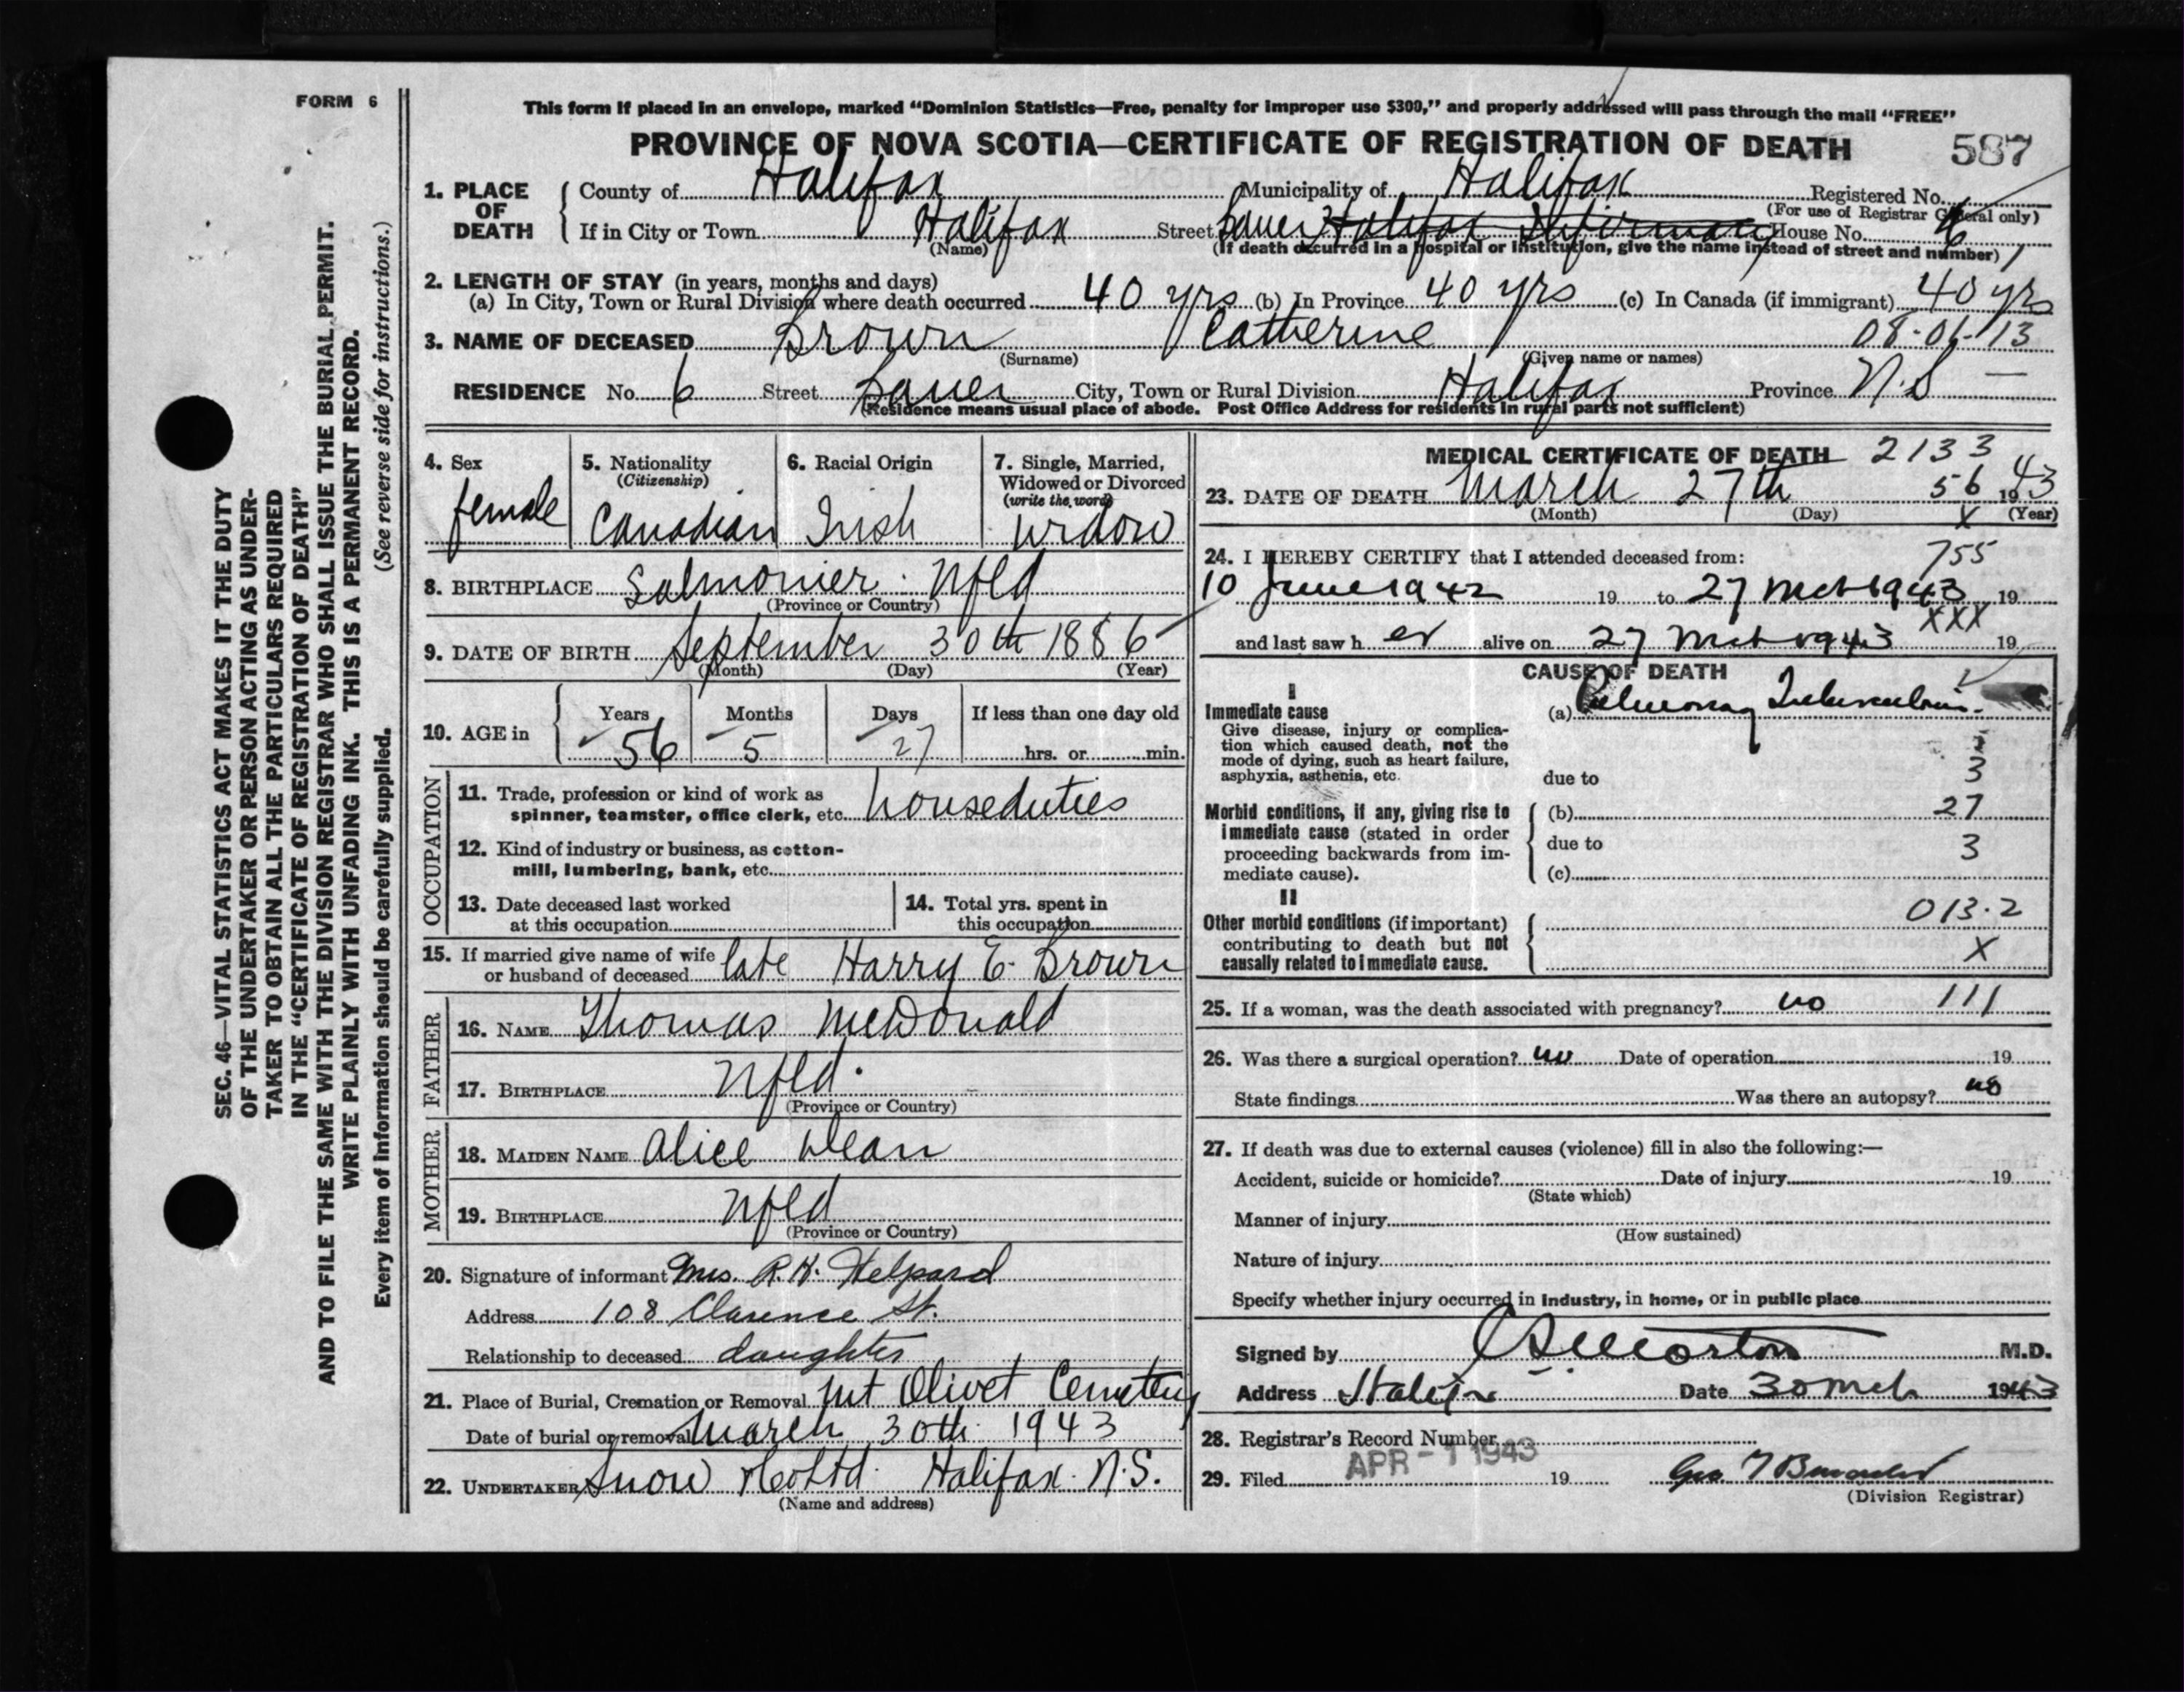 FORM 6
This form if placed in an envelope, marked "Dominion Statistics—Free, penalty for improper use $300," and properly addressed will pass through the mail "FREE"
PROVINCE OF NOVA SCOTIA—CERTIFICATE OF REGISTRATION OF DEATH 587
1. PLACE OF DEATH County of Halifax Municipality of Halifax Registered No.
(For use of Registrar General only)
If in City or Town Halifax Street Bauer Halifax Infirmary House No. 6
(Name) (If death occurred in a hospital or institution, give the name instead of street and number)
2. LENGTH OF STAY (in years, months and days)
(a) In City, Town or Rural Division where death occurred 40 yrs (b) In Province 40 yrs (c) In Canada (if immigrant) 40 yrs
3. NAME OF DECEASED Brown Catherine 08-06-13
(Surname) (Given name or names)
RESIDENCE No. 6 Street Bauer City, Town or Rural Division Halifax Province N.S —
(Residence means usual place of abode. Post Office Address for residents in rural parts not sufficient)
4. Sex female
5. Nationality (Citizenship) Canadian
6. Racial Origin Irish
7. Single, Married, Widowed or Divorced (write the word) widow
8. BIRTHPLACE Salmonier. Nfld
(Province or Country)
9. DATE OF BIRTH September 30th 1886
(Month) (Day) (Year)
10. AGE in Years 56 Months 5 Days 27 If less than one day old
hrs. or min.
OCCUPATION
11. Trade, profession or kind of work as spinner, teamster, office clerk, etc. houseduties
12. Kind of industry or business, as cotton-
mill, lumbering, bank, etc.
13. Date deceased last worked at this occupation
14. Total yrs. spent in this occupation
15. If married give name of wife or husband of deceased late Harry E. Brown
FATHER
16. NAME Thomas McDonald
17. BIRTHPLACE Nfld.
(Province or Country)
MOTHER
18. MAIDEN NAME Alice Dean
19. BIRTHPLACE Nfld
(Province or Country)
20. Signature of informant Mrs. R. H. Helpard
Address 108 Clarence St.
Relationship to deceased daughter
21. Place of Burial, Cremation or Removal Mt Olivet Cemetery
Date of burial or removal March 30th 1943
22. UNDERTAKER Snow & Co Ltd. Halifax. N.S.
(Name and address)
MEDICAL CERTIFICATE OF DEATH 2133
23. DATE OF DEATH March 27th 56 1943
(Month) (Day) X (Year)
24. I HEREBY CERTIFY that I attended deceased from: 755
10 June 1942 19 to 27 Mch 1943 19
and last saw her alive on 27 Mch 1943 XXX 19
CAUSE OF DEATH
I
Immediate cause
Give disease, injury or complica-
tion which caused death, not the
mode of dying, such as heart failure,
asphyxia, asthenia, etc.
(a) Pulmonary Tuberculosis.
3
due to 3
Morbid conditions, if any, giving rise to
immediate cause (stated in order
proceeding backwards from im-
mediate cause).
(b) 27
due to 3
(c)
II
Other morbid conditions (if important)
contributing to death but not
causally related to immediate cause.
013.2
X
25. If a woman, was the death associated with pregnancy? no 111
26. Was there a surgical operation? no Date of operation 19
State findings Was there an autopsy? no
27. If death was due to external causes (violence) fill in also the following:—
Accident, suicide or homicide? Date of injury 19
(State which)
Manner of injury
(How sustained)
Nature of injury
Specify whether injury occurred in industry, in home, or in public place
Signed by Morton M.D.
Address Halifax Date 30 Mch 1943
28. Registrar's Record Number
29. Filed APR - 1 1943 19
(Division Registrar)
SEC. 46—VITAL STATISTICS ACT MAKES IT THE DUTY
OF THE UNDERTAKER OR PERSON ACTING AS UNDER-
TAKER TO OBTAIN ALL THE PARTICULARS REQUIRED
IN THE "CERTIFICATE OF REGISTRATION OF DEATH"
AND TO FILE THE SAME WITH THE DIVISION REGISTRAR WHO SHALL ISSUE THE BURIAL PERMIT.
WRITE PLAINLY WITH UNFADING INK. THIS IS A PERMANENT RECORD.
Every item of information should be carefully supplied. (See reverse side for instructions.)